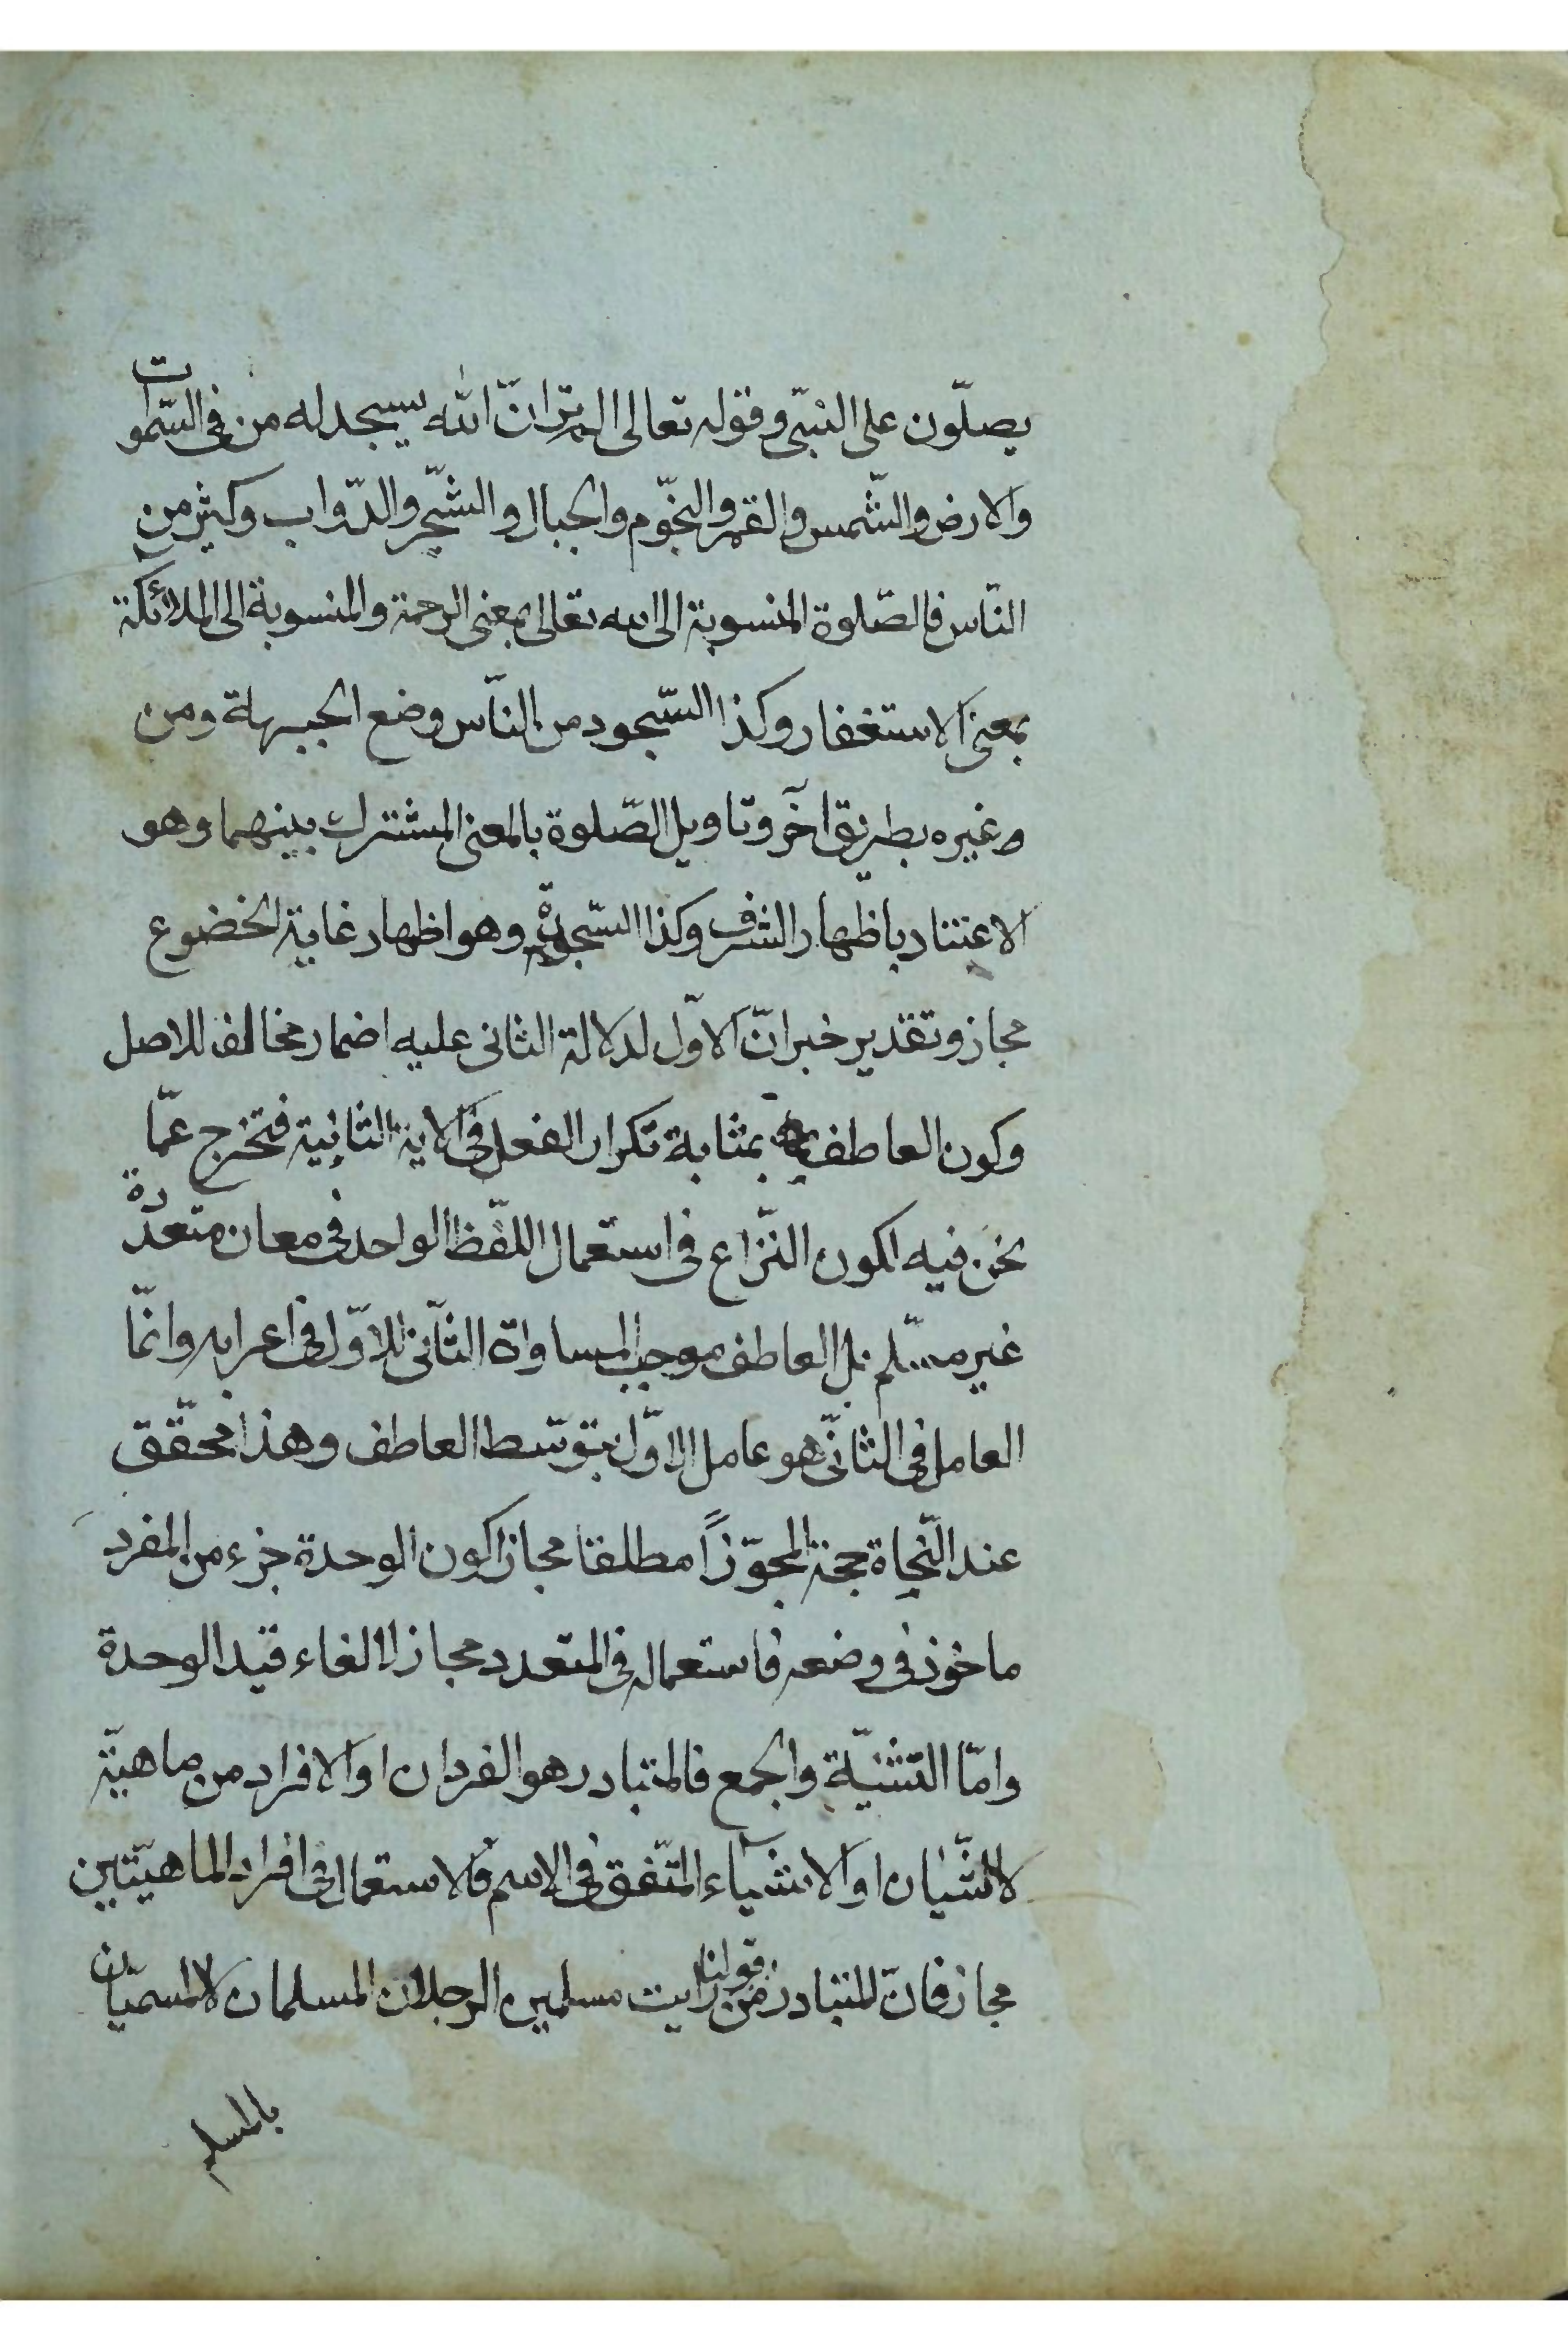 يصلّون على النبّى وقوله تعالى الم تر انّ الله يسجد له من فى السّموات
والارض والشّمس والقمر والنجّوم والجبال والشجّر والدّواب وكثير من
النّاس فالصّلوة المنسوبة الى الله تعالى بمعنى الرحمة والمنسوبة الى الملائكة
بمعنى الاستغفار وكذا السّجود من النّاس وضع الجبهة ومن
غيره بطريق آخر وتاويل الصّلوة بالمعنى المشترك بينهما وهو
الاعتناد باظهار الشرف وكذا السّجود وهو اظهار غاية الخضوع
مجاز وتقدير خبر انّ الاوّل لدلالة الثانى عليه اضمار مخالف للاصل
وكون العاطف بمثابة تكرار الفعل فى الاية الثانية فتخرج عمّا
نحن فيه لكون النّزاع فى استعمال اللّفظ الواحد فى معان متعدّدة
غير مسّلم بل العاطف موجب لمساواة الثّانى للاوّل فى اعرابه وانّما
العامل فى الثانّى هو عامل الاوّل بتوسّط العاطف وهذا محقّق
عند النّحاة حجة المجوّزاً مطلقا مجازا كون الوحدة جزء من المفرد
ماخوذ فى وضعه فاستعماله فى المتعدد مجاز لالغاء قيد الوحدة
وامّا التّثنيّة والجمع فالمتبادر هو الفردان او الافراد من ماهيّة
لا الشّيان او الاشياء المتّفق فى الاسم فالاستعمال فى افراد الماهيّتين
مجاز فانّ المتبادر من قولنا رايت مسلمين الرجلان المسلمان لا المسمّيان
بالمسلم